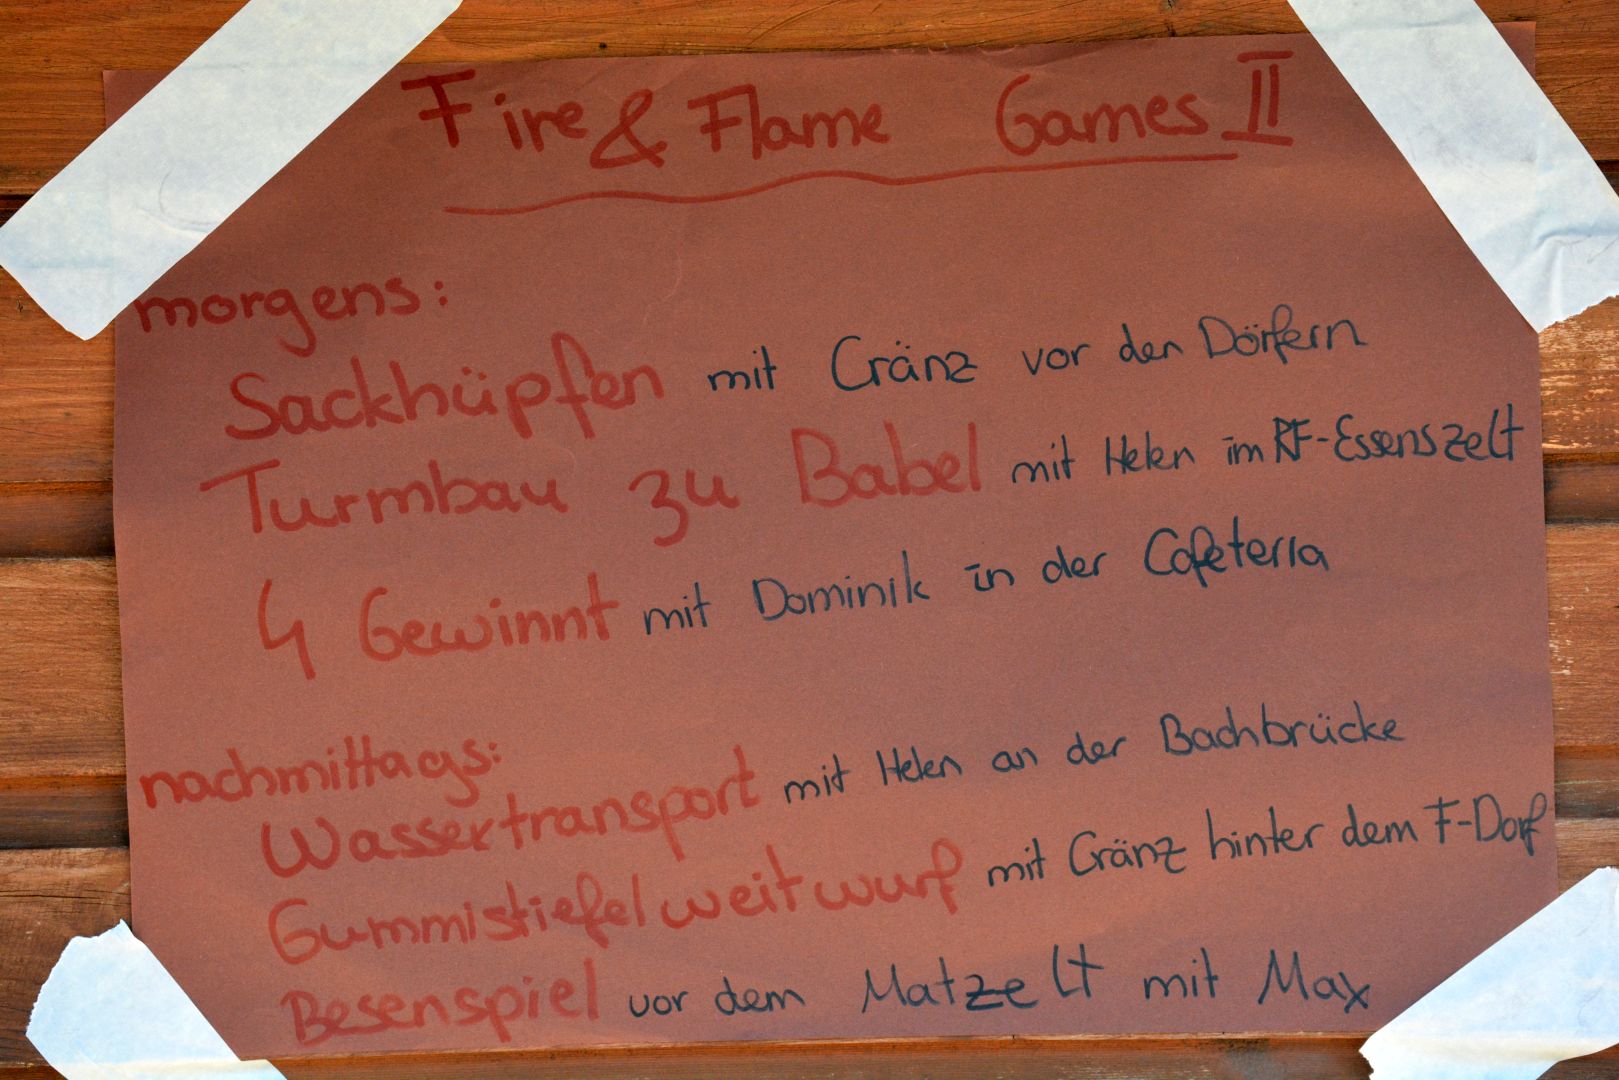 Fire & Flame Games II
morgens:
Sackhüpfen mit Cränz vor den Dörfern
Turmbau zu Babel mit Helen im RF-Essenszelt
4 Gewinnt mit Dominik in der Cafeteria
nachmittags:
Wassertransport mit Helen an der Bachbrücke
Gummistiefelweitwurf mit Cränz hinter dem F-Dorf
Besenspiel vor dem Matzelt mit Max